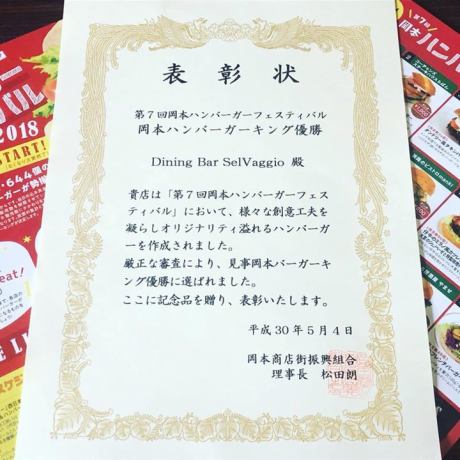 表彰状
第7回岡本ハンバーガーフェスティバル
岡本ハンバーガーキング優勝
Dining Bar SelVaggio 殿
貴店は「第7回岡本ハンバーガーフェス
ティバル」において、様々な創意工夫を
凝らしオリジナリティ溢れるハンバーガ
ーを作成されました。
厳正な審査により、見事岡本バーガーキ
ング優勝に選ばれました。
ここに記念品を贈り、表彰いたします。
平成30年5月4日
岡本商店街振興組合
理事長 松田朗
バル
2018
START!
644個の
eat!
第7回
岡本ハン